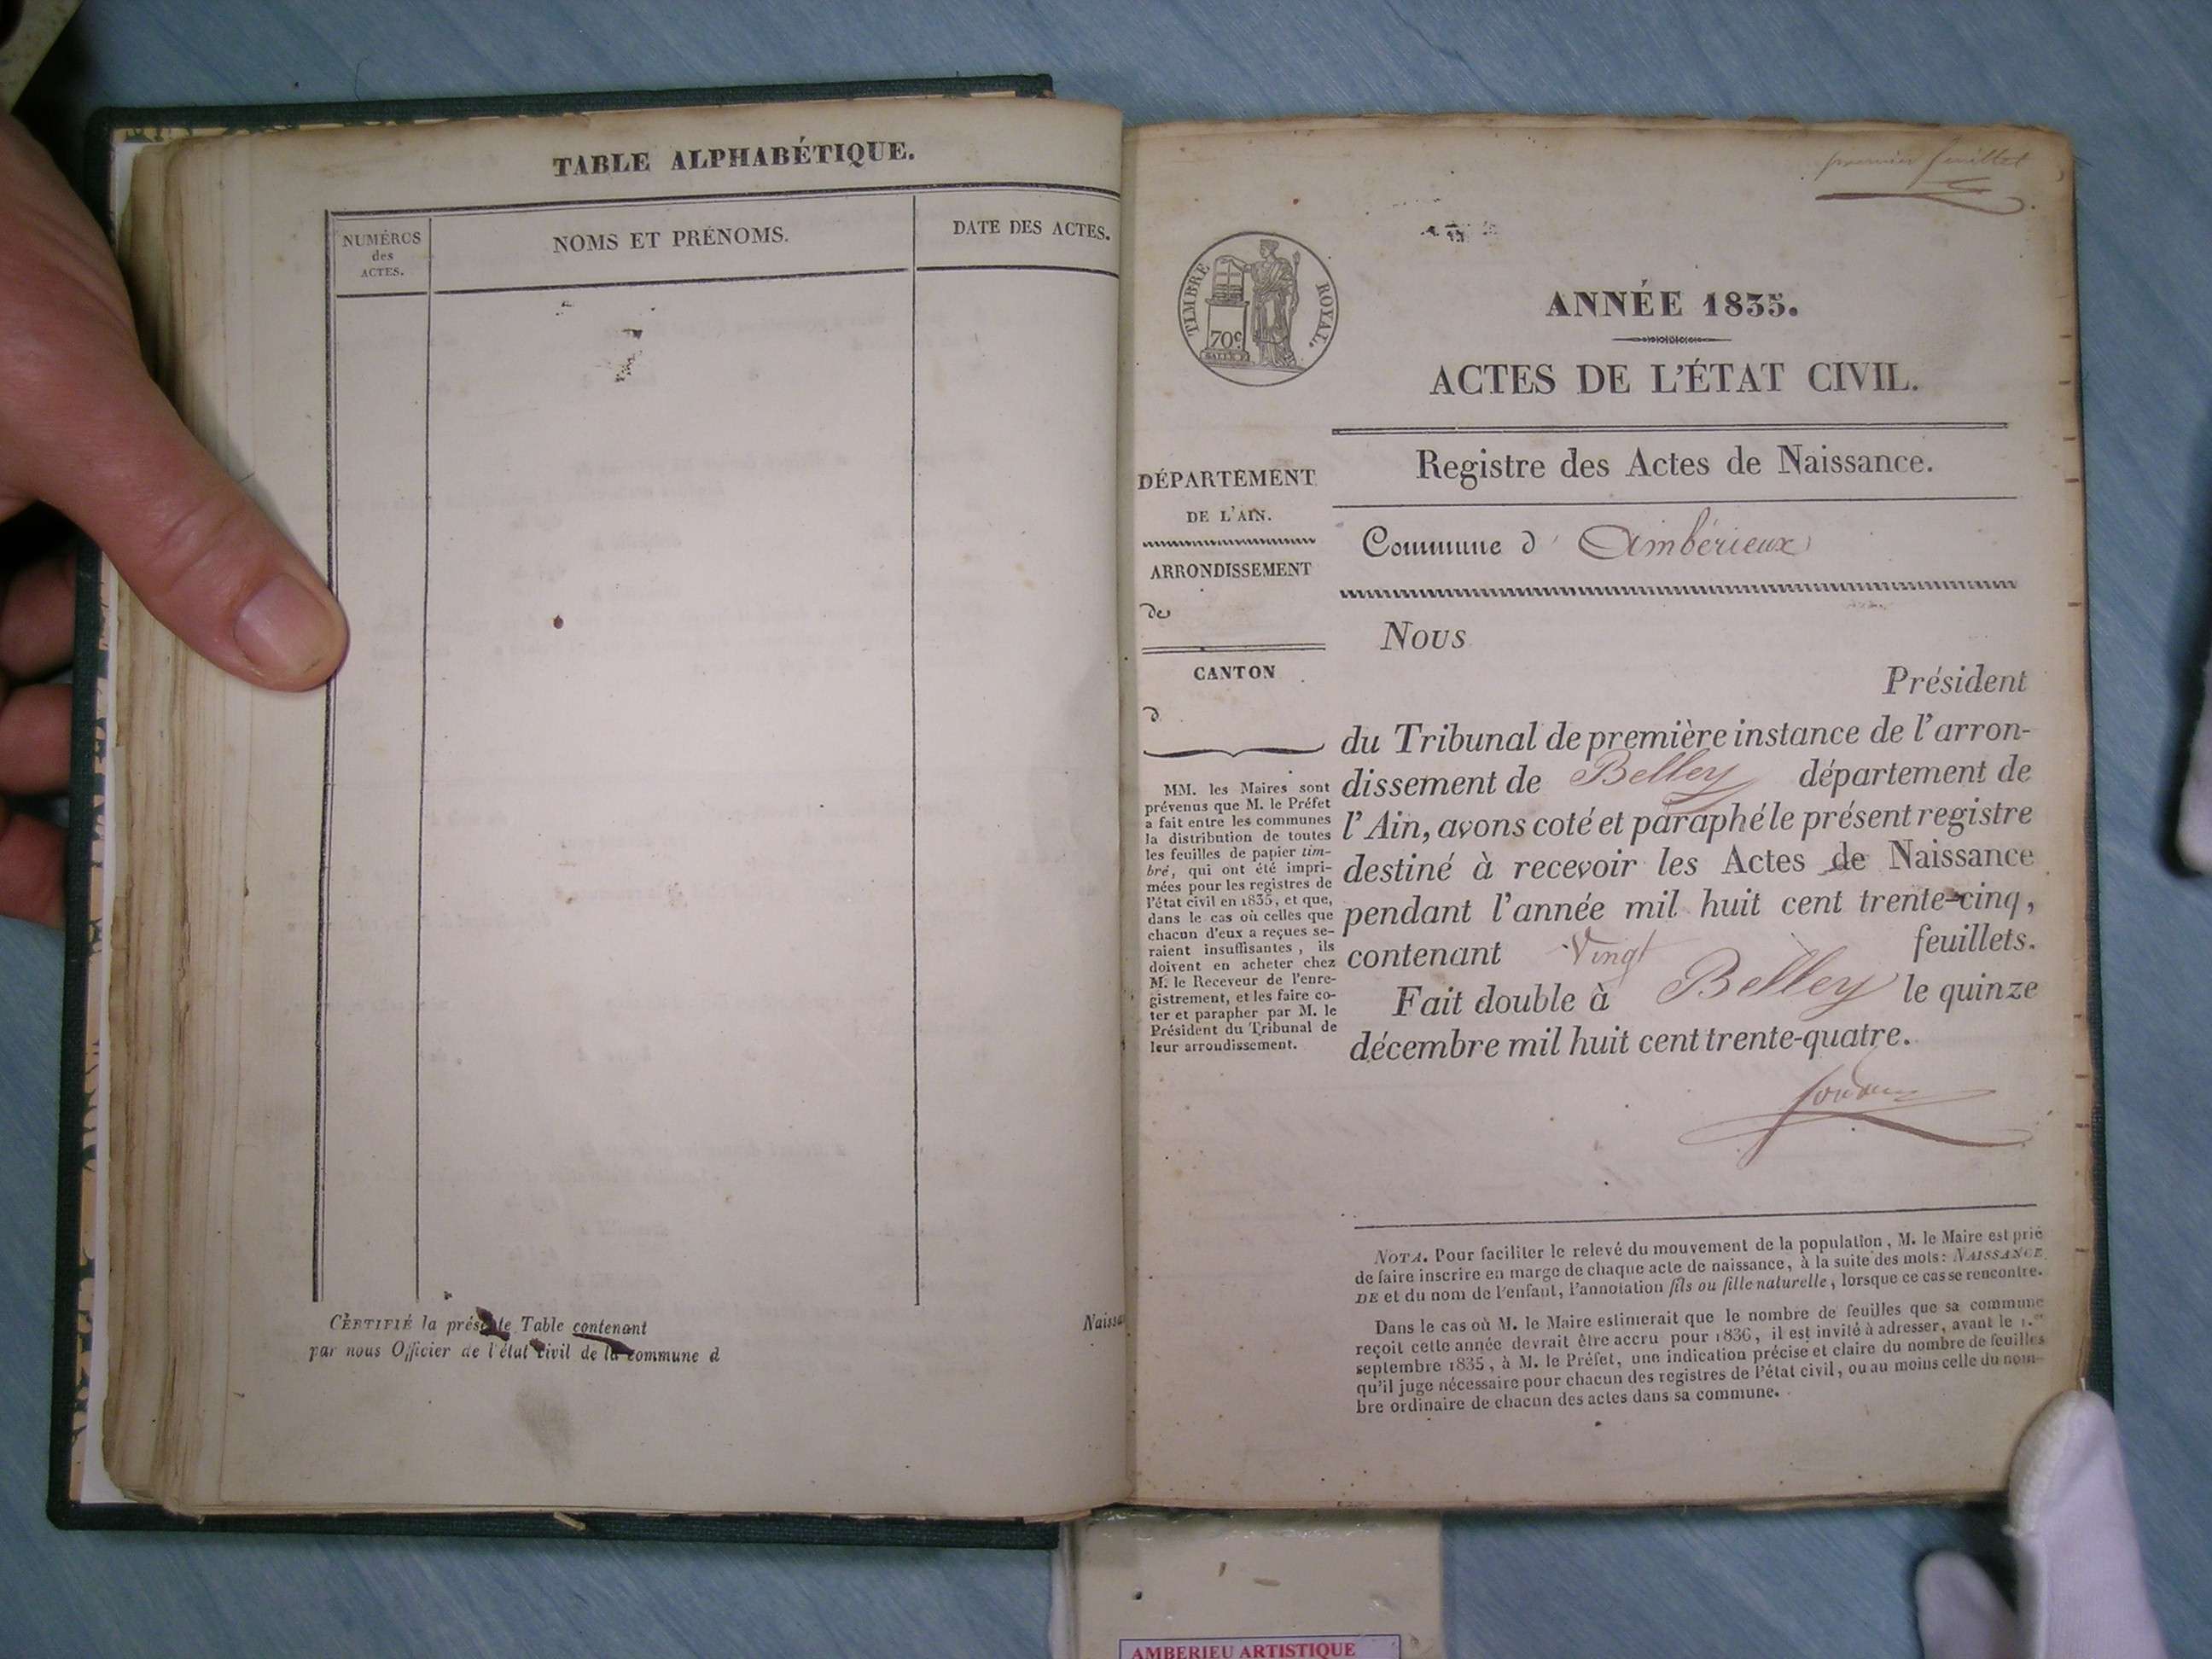 TABLE ALPHABÉTIQUE.
NUMÉROS
des
ACTES.
NOMS ET PRÉNOMS.
DATE DES ACTES.
CERTIFIÉ la présente Table contenant
Naissa
par nous Officier de l'état civil de la commune d
premier feuillet
TIMBRE ROYAL.
70c
ANNÉE 1835.
ACTES DE L'ÉTAT CIVIL.
Registre des Actes de Naissance.
DÉPARTEMENT
DE L'AIN.
ARRONDISSEMENT
de
CANTON
d
MM. les Maires sont
prévenus que M. le Préfet
a fait entre les communes
la distribution de toutes
les feuilles de papier tim-
bré, qui ont été impri-
mées pour les registres de
l'état civil en 1835, et que,
dans le cas où celles que
chacun d'eux a reçues se-
raient insuffisantes, ils
doivent en acheter chez
M. le Receveur de l'enre-
gistrement, et les faire co-
ter et parapher par M. le
Président du Tribunal de
leur arroudissement.
Commune d' Ambérieux
Nous
Président
du Tribunal de première instance de l'arron-
dissement de Belley département de
l'Ain, avons coté et paraphé le présent registre
destiné à recevoir les Actes de Naissance
pendant l'année mil huit cent trente-cinq,
contenant Vingt feuillets.
Fait double à Belley le quinze
décembre mil huit cent trente-quatre.
NOTA. Pour faciliter le relevé du mouvement de la population, M. le Maire est prié
de faire inscrire en marge de chaque acte de naissance, à la suite des mots: NAISSANCE
DE et du nom de l'enfant, l'annotation fils ou fille naturelle, lorsque ce cas se rencontre.
Dans le cas où M. le Maire estimerait que le nombre de feuilles que sa commune
reçoit cette année devrait être accru pour 1836, il est invité à adresser, avant le 1.er
septembre 1835, à M. le Préfet, une indication précise et claire du nombre de feuilles
qu'il juge nécessaire pour chacun des registres de l'état civil, ou au moins celle du nom-
bre ordinaire de chacun des actes dans sa commune.
AMBERIEU ARTISTIQUE